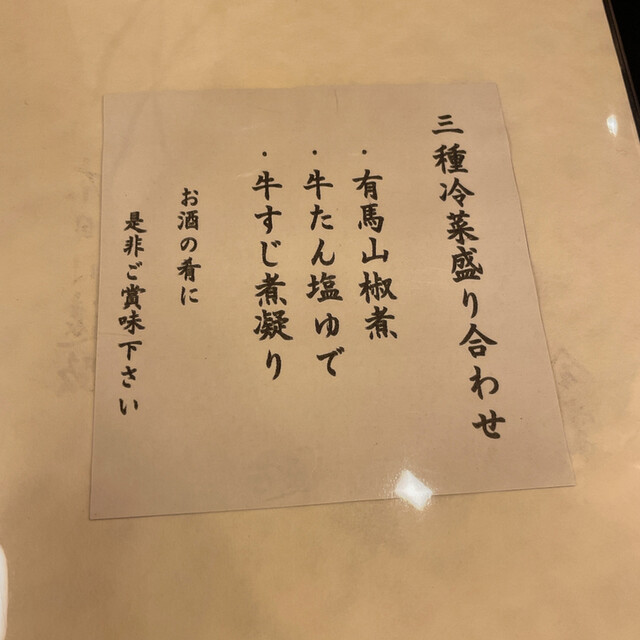 三種冷菜盛り合わせ
・有馬山椒煮
・牛たん塩ゆで
・牛すじ煮凝り
お酒の肴に
是非ご賞味下さい